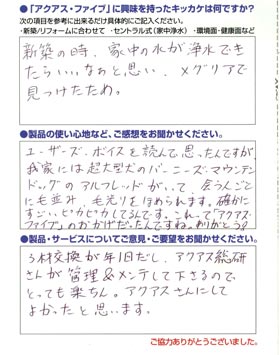 ●「アクアス・ファイブ」に興味を持ったキッカケは何ですか?
次の項目を参考に出来るだけ具体的にご記入ください。
・新築/リフォームに合わせて ・セントラル式(家中浄水) ・環境面・健康面など
新築の時、家中の水が浄水でき
たらいいなぁと思い、メグリアで
見つけたため。
●製品の使い心地など、ご感想をお聞かせください。
ユーザーズ・ボイスを読んで思ったんですが
我家には超大型犬のバーニーズ・マウンテン
ドッグのアルフレッドがいて、会う人ごと
にも並み、毛光りをほめられます。確かに
すごい、ピカピカしてるんです。これって「アクアス・
ファイブ」のおかげだったんですね。ありがとう♡
●製品・サービスについてご意見・ご要望をお聞かせください。
ろ材交換が年1回だし、アクアス総研
さんが管理&メンテして下さるので、
とっても楽ちん。アクアスさんにして
よかったと思います。
ご協力ありがとうございました。